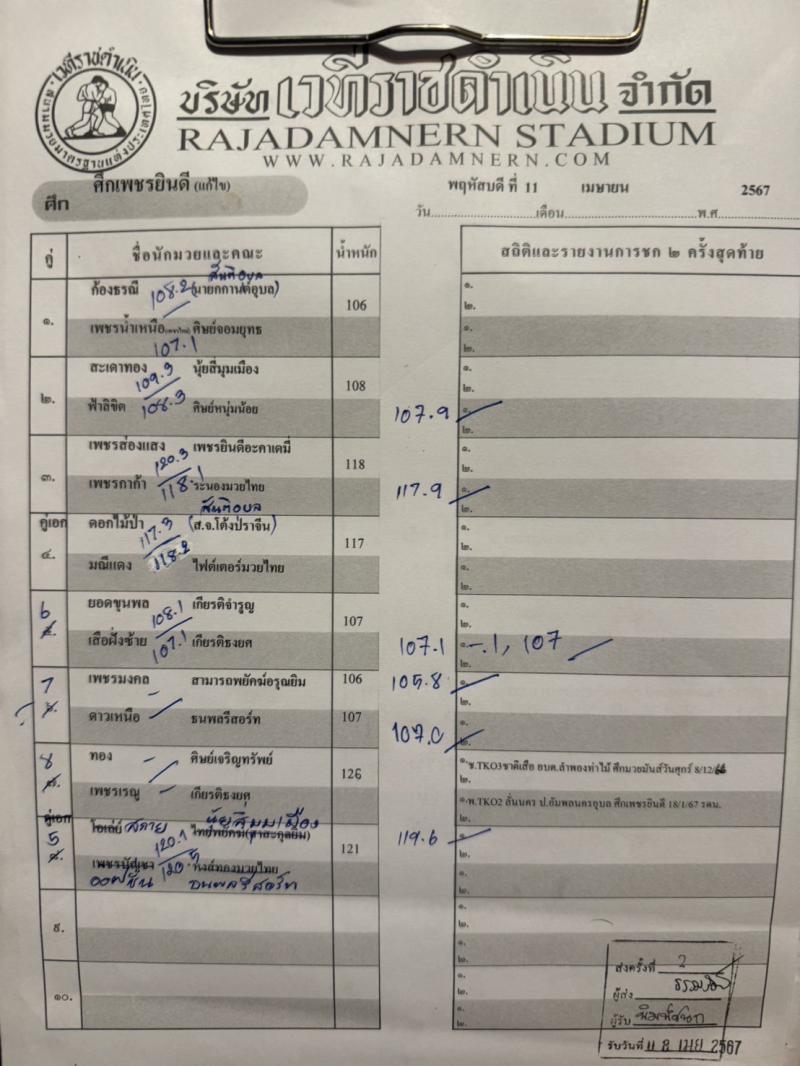 เวทีราชดำเนิน
สนามมวยมาตรฐานแห่งประเทศไทย
บริษัท เวทีราชดำเนิน จำกัด
RAJADAMNERN STADIUM
WWW.RAJADAMNERN.COM
ศึก ศึกเพชรยินดี (แก้ไข)
พฤหัสบดี ที่ 11 เมษายน 2567
วัน เดือน พ.ศ
คู่ ชื่อนักมวยและคณะ น้ำหนัก สถิติและรายงานการชก ๒ ครั้งสุดท้าย
สันติอุบล
ก้องธรณี 108.2 (นายกกานต์อุบล) 106
๑.
เพชรน้ำเหนือ ศิษย์จอมยุทธ
107.1
สะเดาทอง 109.3 นุ้ยสี่มุมเมือง
๒. 108
ฟ้าลิขิต 108.3 ศิษย์หนุ่มน้อย 107.9
เพชรส่องแสง เพชรยินดีอะคาเดมี่
๓. 120.3 118
เพชรกาก้า 118.1 ระนองมวยไทย 117.9
สันติอุบล
คู่เอก ดอกไม้ป่า 117.3 (ส.จ.โต้งปราจีน)
๔. 117
มณีแดง 118.2 ไฟต์เตอร์มวยไทย
ยอดขุนพล 108.1 เกียรติจำรูญ
6 ๕. 107
เสือฝั่งซ้าย 107.1 เกียรติธงยศ 107.1 -.1, 107
เพชรมงคล สามารถพยัคฆ์อรุณยิม 106 105.8
7 ๖.
ดาวเหนือ ธนพลรีสอร์ท 107 107.0
ทอง ศิษย์เจริญทรัพย์ ๑.ช.TKO3ชาติเสือ อบต.ลำพองท่าไม้ ศึกมวยมันส์วันศุกร์ 8/12/66
8 ๗. 126
เพชรเรณู เกียรติธงยศ ๑.พ.TKO2 ลั่นนคร ป.อัมพลนครอุบล ศึกเพชรยินดี 18/1/67 รดน.
คู่เอก นุ้ยสี่มุมเมือง
โอเล่ย์ สกาย 120.1
5 ๘. 121 119.6
หงส์ทองมวยไทย
ธนพลรีสอร์ท
๙.
๑๐.
ส่งครั้งที่ 2
ผู้ส่ง
ผู้รับ
รับวันที่ 08 เมย 2567